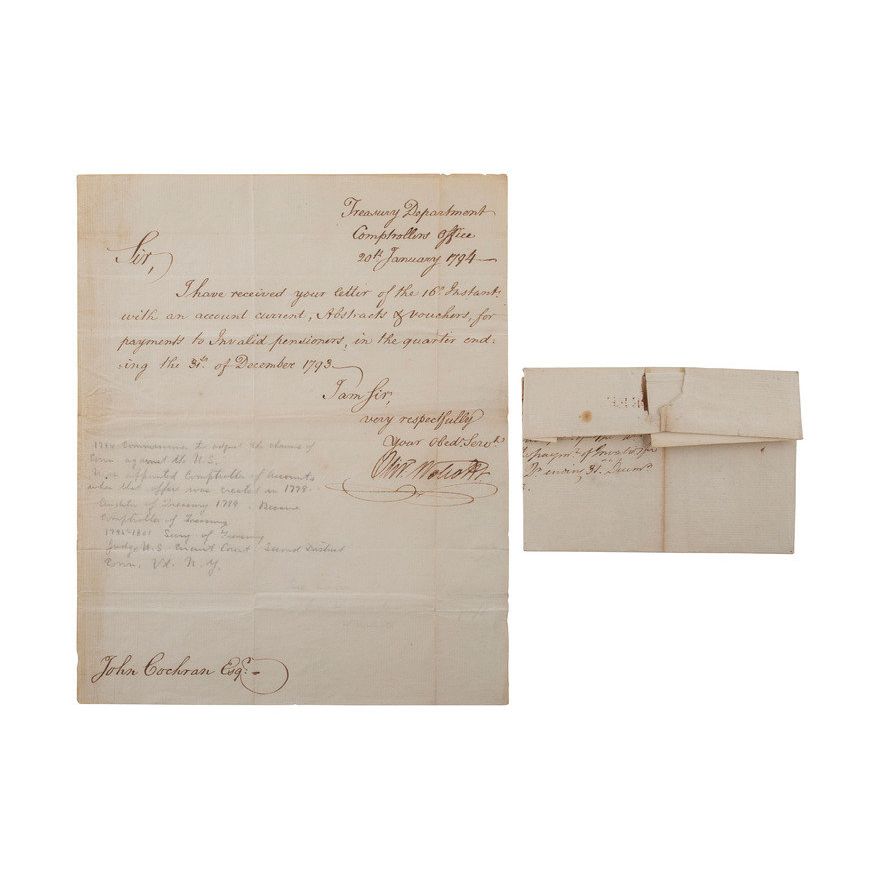 Treasury Department
Comptrollers Office
20th January 1794
Sir,
I have received your letter of the 16th Instant
with an account current, Abstracts & vouchers, for
payments to Invalid pensioners, in the quarter end-
ing the 31st of December 1793
I am Sir,
very respectfully
Your Obedt Servt
Olivr Wolcott Jr
Commissioner to adjust the claims of
Conn against the U.S.
appointed Comptroller of Accounts
when that office was created in 1778
of Treasury 1789. Became
Comptroller of Treasury
Secry of Treasury
Judge U.S. Circuit Court Second District
Conn. Vt. N.Y.
John Cochran Esqr
paymts of Invalid
ending 31st